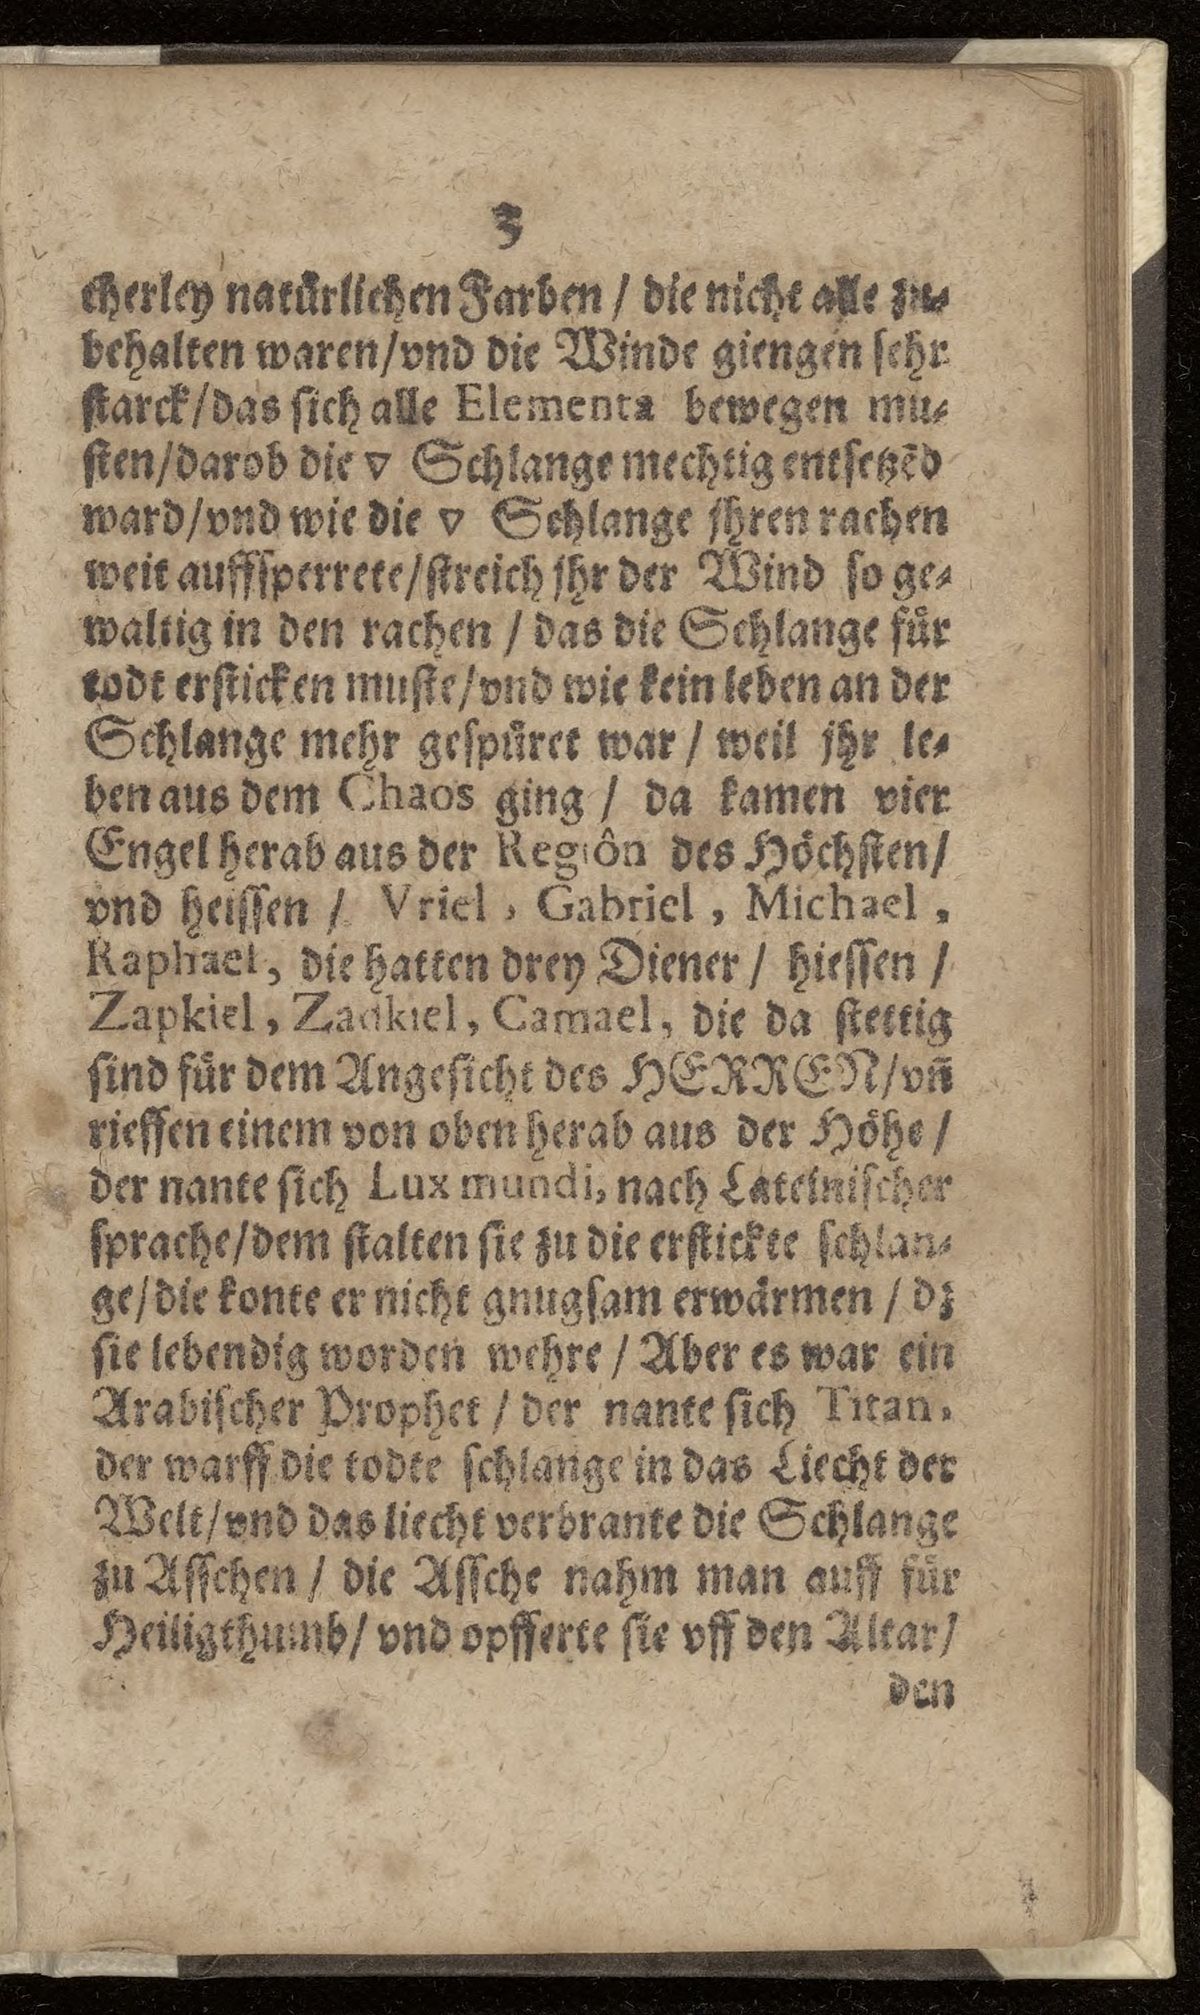 3
cherley natürlichen Farben / die nicht alle zu⸗
behalten waren/vnd die Winde giengen sehr
starck/das sich alle Elementa bewegen mu⸗
sten/darob die ▽ Schlange mechtig entsetzẽd
ward/vnd wie die ▽ Schlange jhren rachen
weit auffsperrete/streich jhr der Wind so ge⸗
waltig in den rachen / das die Schlange für
todt ersticken muste/vnd wie kein leben an der
Schlange mehr gespüret war / weil jhr le⸗
ben aus dem Chaos ging / da kamen vier
Engel herab aus der Regiôn des Höchsten/
vnd heissen / Vriel, Gabriel, Michael,
Raphael, die hatten drey Diener / hiessen /
Zapkiel, Zadkiel, Camael, die da stettig
sind für dem Angesicht des HERREN/vñ
rieffen einem von oben herab aus der Höhe /
der nante sich Lux mundi, nach Lateinischer
sprache/dem stalten sie zu die erstickte schlan⸗
ge/die konte er nicht gnugsam erwärmen / dz
sie lebendig worden wehre / Aber es war ein
Arabischer Prophet / der nante sich Titan,
der warff die todte schlange in das Liecht der
Welt/vnd das liecht verbrante die Schlange
zu Asschen / die Assche nahm man auff für
Heiligthumb/ vnd opfferte sie vff den Altar/
den